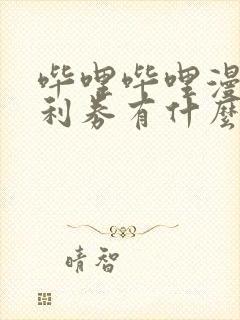 哔哩哔哩漫
利券有什麼
晴智